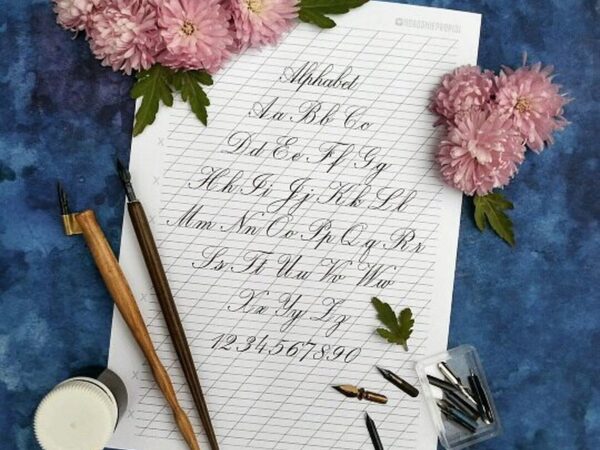 Alphabet
Aa Bb Cc
Dd Ee Ff Gg
Hh Ii Jj Kk Ll
Mm Nn Oo Pp Qq Rr
Ss Tt Uu Vv Ww
Xx Yy Zz
1234567890